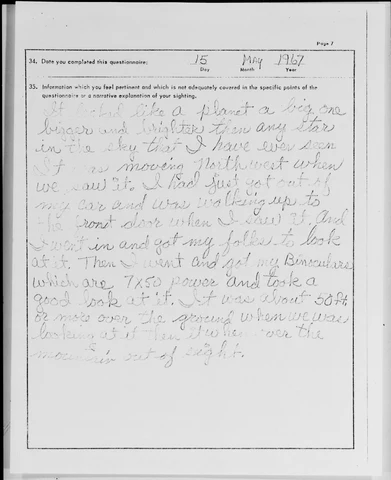 Page 7
34. Date you completed this questionnaire: 15 May 1967
Day Month Year
35. Information which you feel pertinent and which is not adequately covered in the specific points of the
questionnaire or a narrative explanation of your sighting.
It looked like a planet a big one
bigger and brighter then any star
in the sky that I have ever seen
It was moving North west when
we saw it. I had just got out of
my car and was walking up to
the front door when I saw it. And
I went in and got my folks to look
at it. Then I went and got my Binoculars
which are 7x50 power and took a
good look at it. It was about 50 ft.
or more over the ground when we was
looking at it then it over the
mountain out of sight.